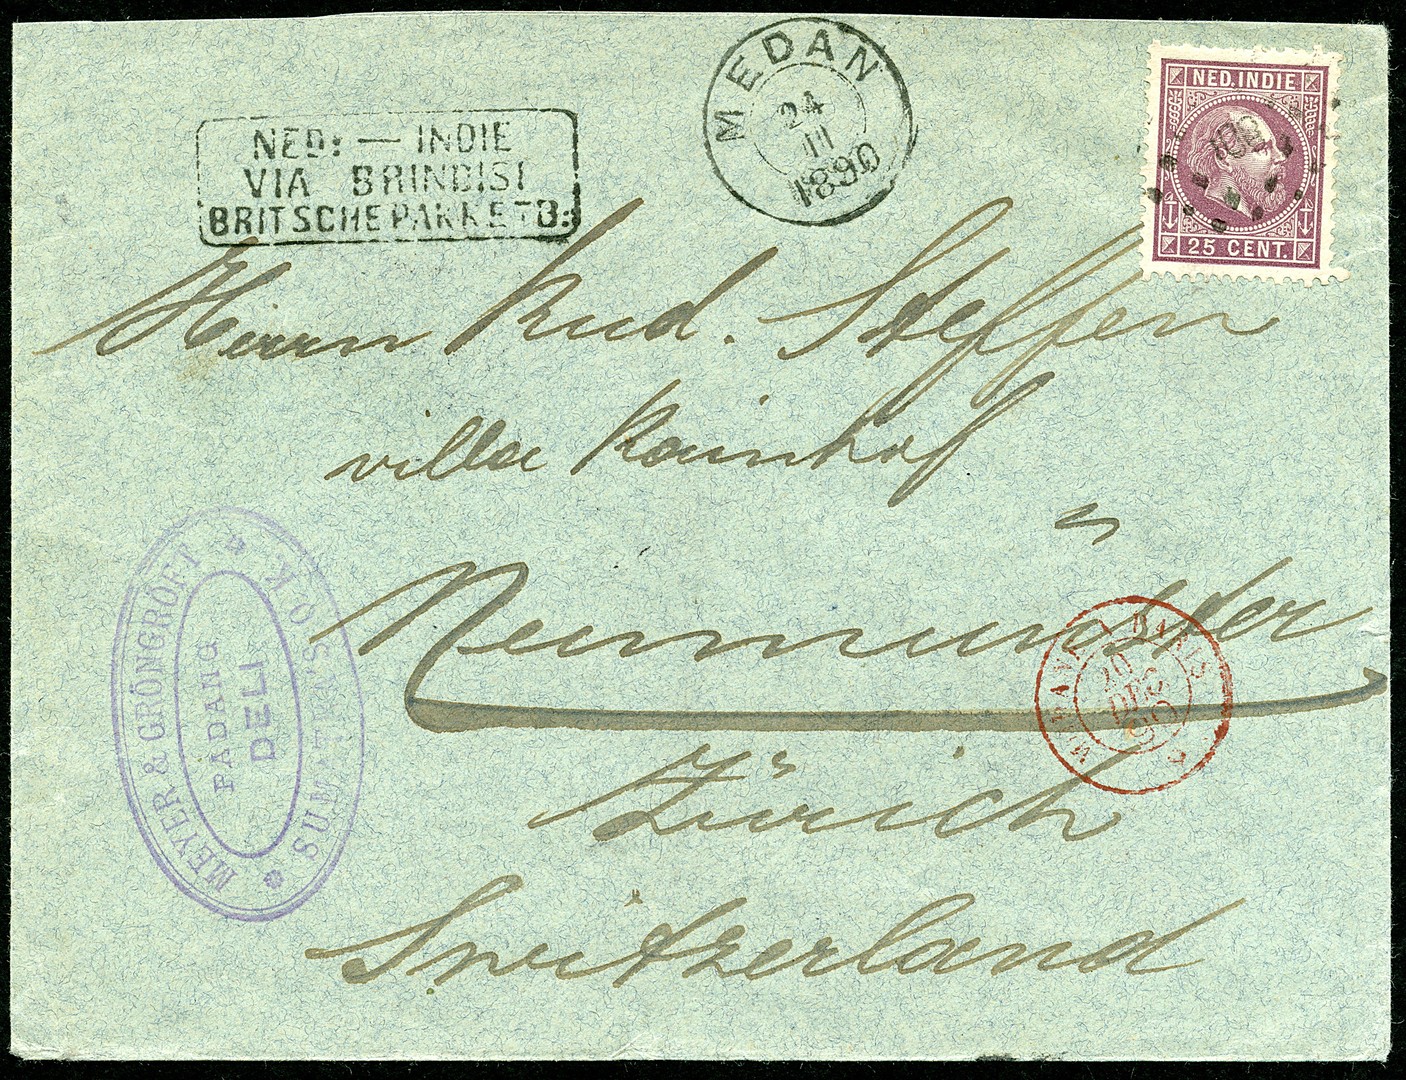 NED: — INDIE
VIA BRINDISI
BRITSCHE PAKKETB:
MEDAN
24
11
1890
NED. INDIE
25 CENT.
Herrn Rud. Steffen
villa Rainhof
Neumünster
Zürich
Switzerland
MEYER & GRÖNGRÖFT
SUMATRA'S O. K.
PADANG
DELI
MODANE A PARIS
20
DEC
90